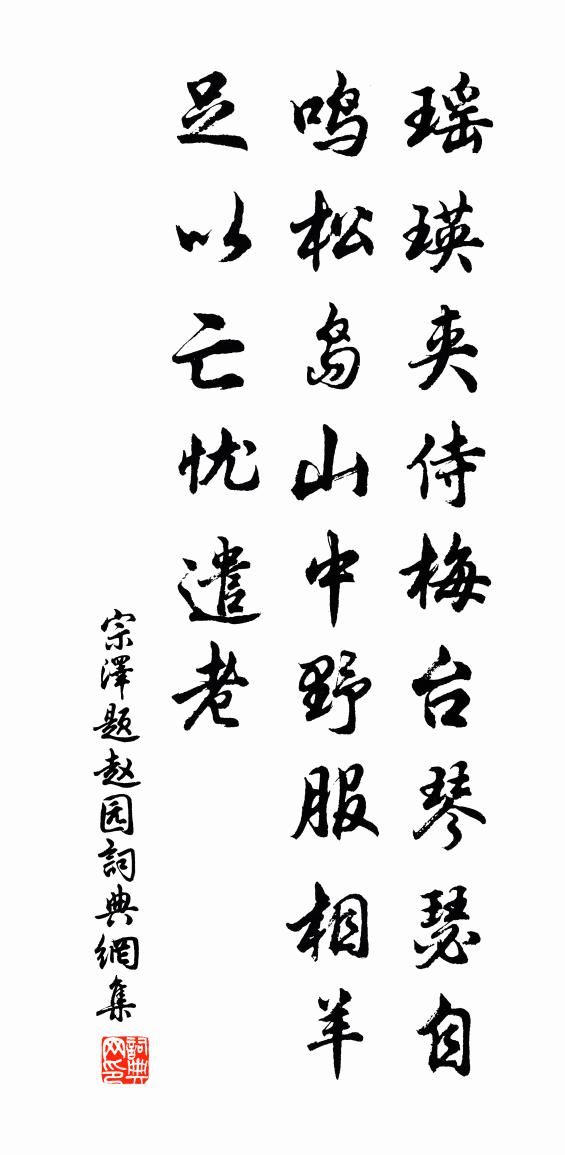 瑶瑛夹侍梅台琴瑟自
鸣松岛山中野服相羊
足以亡忧遣老
宗澤题赵园詞典網集
詞典
网印